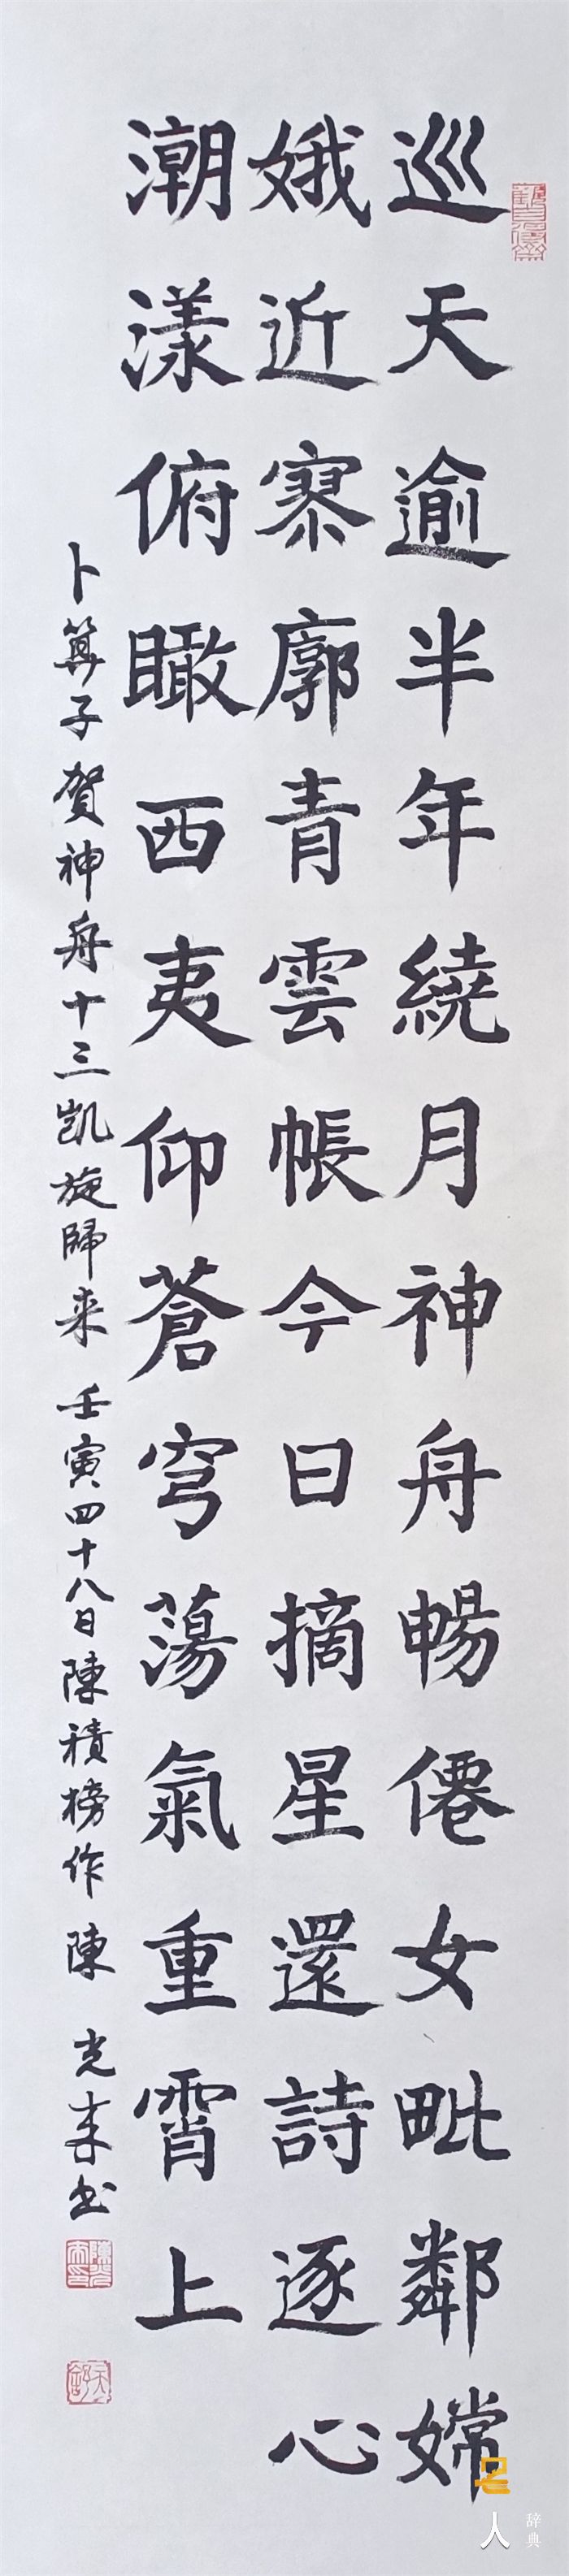 巡天逾半年繞月神舟暢僊女毗鄰嫦
娥近寥廓青雲帳今日摘星還詩逐心
潮漾俯瞰西夷仰蒼穹蕩氣重霄上
卜筭子賀神舟十三凯旋歸来 壬寅四十八日陳積榜作 陳 书
名人辞典